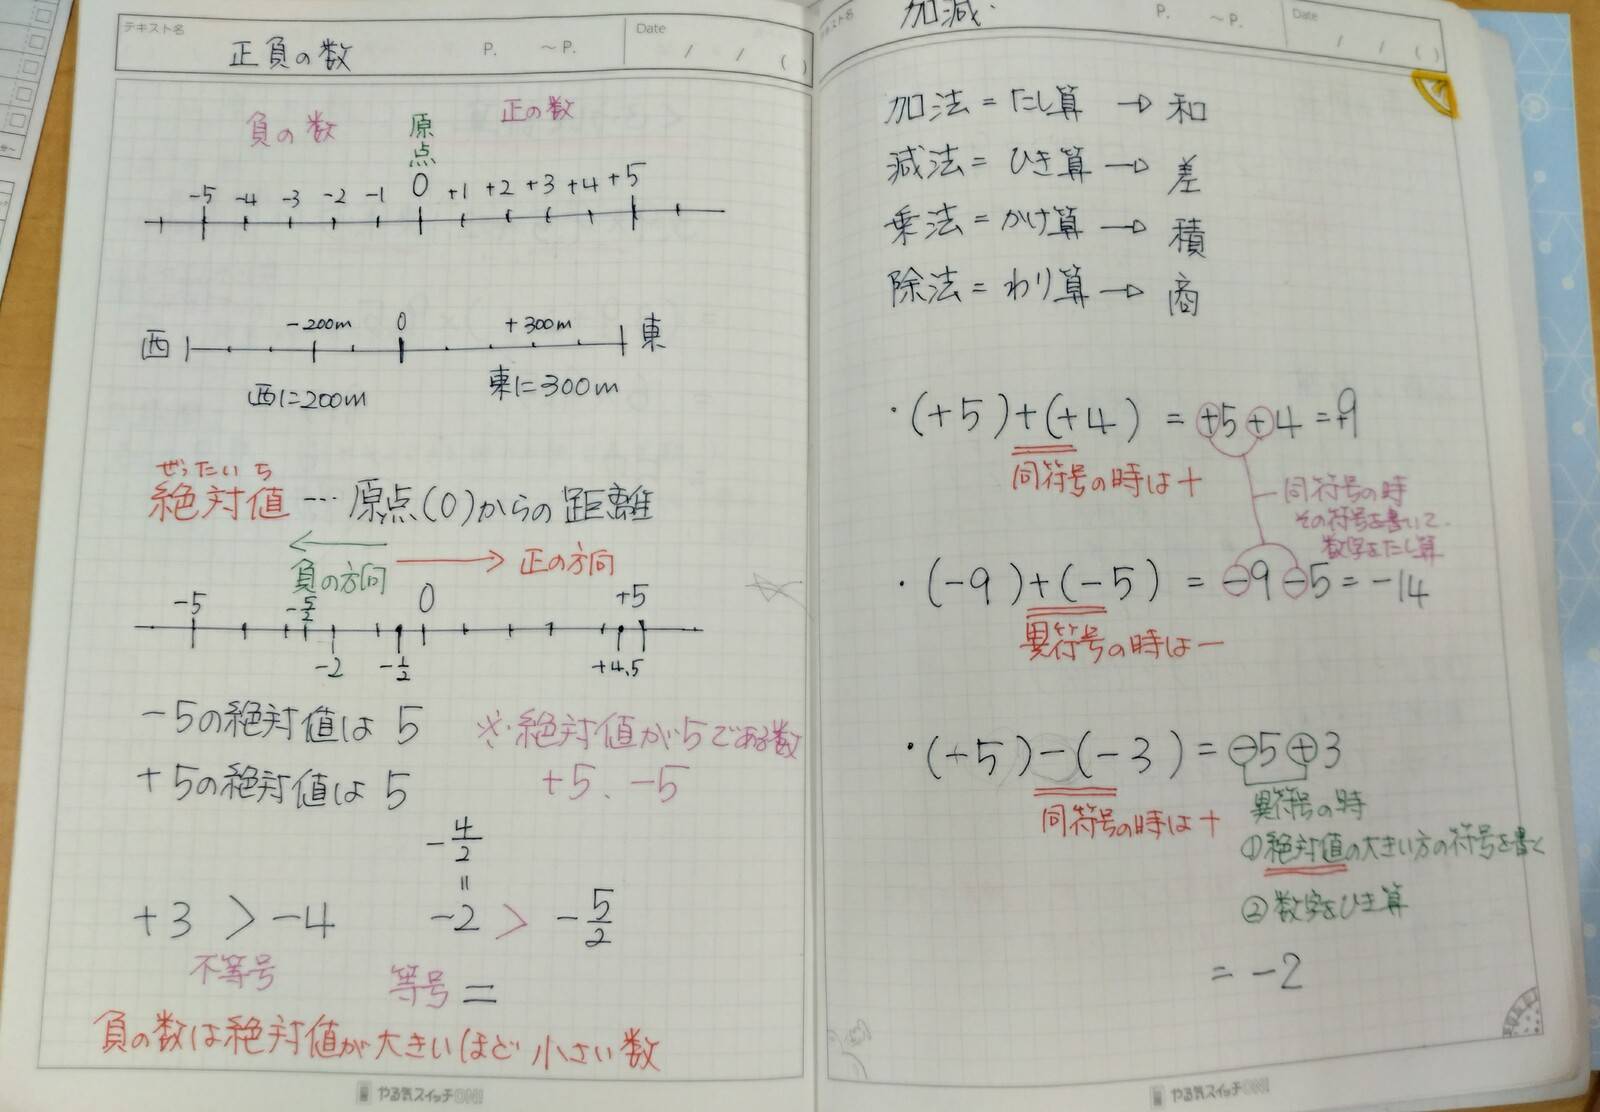 テキスト名
正負の数
P. ～P.
Date / / ( )
負の数 原点 正の数
-5 -4 -3 -2 -1 0 +1 +2 +3 +4 +5
-200m 0 +300m
西 東
西に200m 東に300m
ぜったいち
絶対値 … 原点(0)からの距離
負の方向 正の方向
-5 -5/2 0 +5
-2 -1/2 +4.5
-5の絶対値は 5
+5の絶対値は 5
※・絶対値が5である数
+5、-5
-4/2
=
+3 > -4 -2 > -5/2
不等号 等号 =
負の数は絶対値が大きいほど 小さい数
やる気スイッチON!
テキスト名
加減・
P. ～P.
Date / / ( )
加法 = たし算 → 和
減法 = ひき算 → 差
乗法 = かけ算 → 積
除法 = わり算 → 商
・(+5)+(+4) = +5+4 = +9
同符号の時は+
同符号の時
その符号を書いて
数字をたし算
・(-9)+(-5) = -9-5 = -14
異符号の時は-
・(+5)-(-3) = -5+3
同符号の時は+
異符号の時
①絶対値の大きい方の符号を書く
②数字をひき算
= -2
やる気スイッチON!